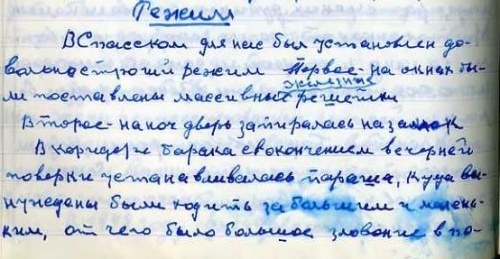 Режим
В Спасском для нас был установлен до-
вольно строгий режим Первое - на окнах бы-
железные
ли поставлены массивные решетки
Второе - на ноч дверь запиралась на замок
В коридоре барака с окончением вечерней
поверки устанавливалась параша, куда вы-
нуждены были ходить за большим и малень-
ким, от чего было большое зловоние в по-